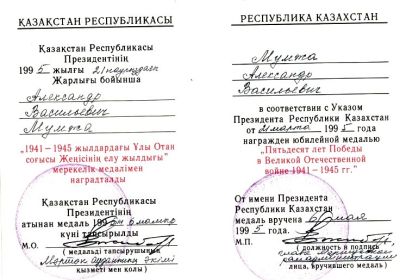 ҚАЗАҚСТАН РЕСПУБЛИКАСЫ
Қазақстан Республикасы
Президентінің
1995 жылғы 21 наурыздағы
Жарлығы бойынша
Александр
Васильевич
Мумжа
„1941—1945 жылдардағы Ұлы Отан
соғысы Жеңісінің елу жылдығы"
мерекелік медалімен
наградталды
Қазақстан Республикасы
Президентінің
атынан медаль 199
күні тапсырылды
М.О.
( медальді тапсырушының
қызметі мен қолы )
РЕСПУБЛИКА КАЗАХСТАН
Мумжа
Александр
Васильевич
в соответствии с Указом
Президента Республики Казахстан
от 21 марта 1995 года
награжден юбилейной медалью
"Пятьдесят лет Победы
в Великой Отечественной
войне 1941—1945 гг."
От имени Президента
Республики Казахстан
медаль вручена 6 мая
1995 года.
М.П.
( должность и подпись
лица, вручившего медаль)